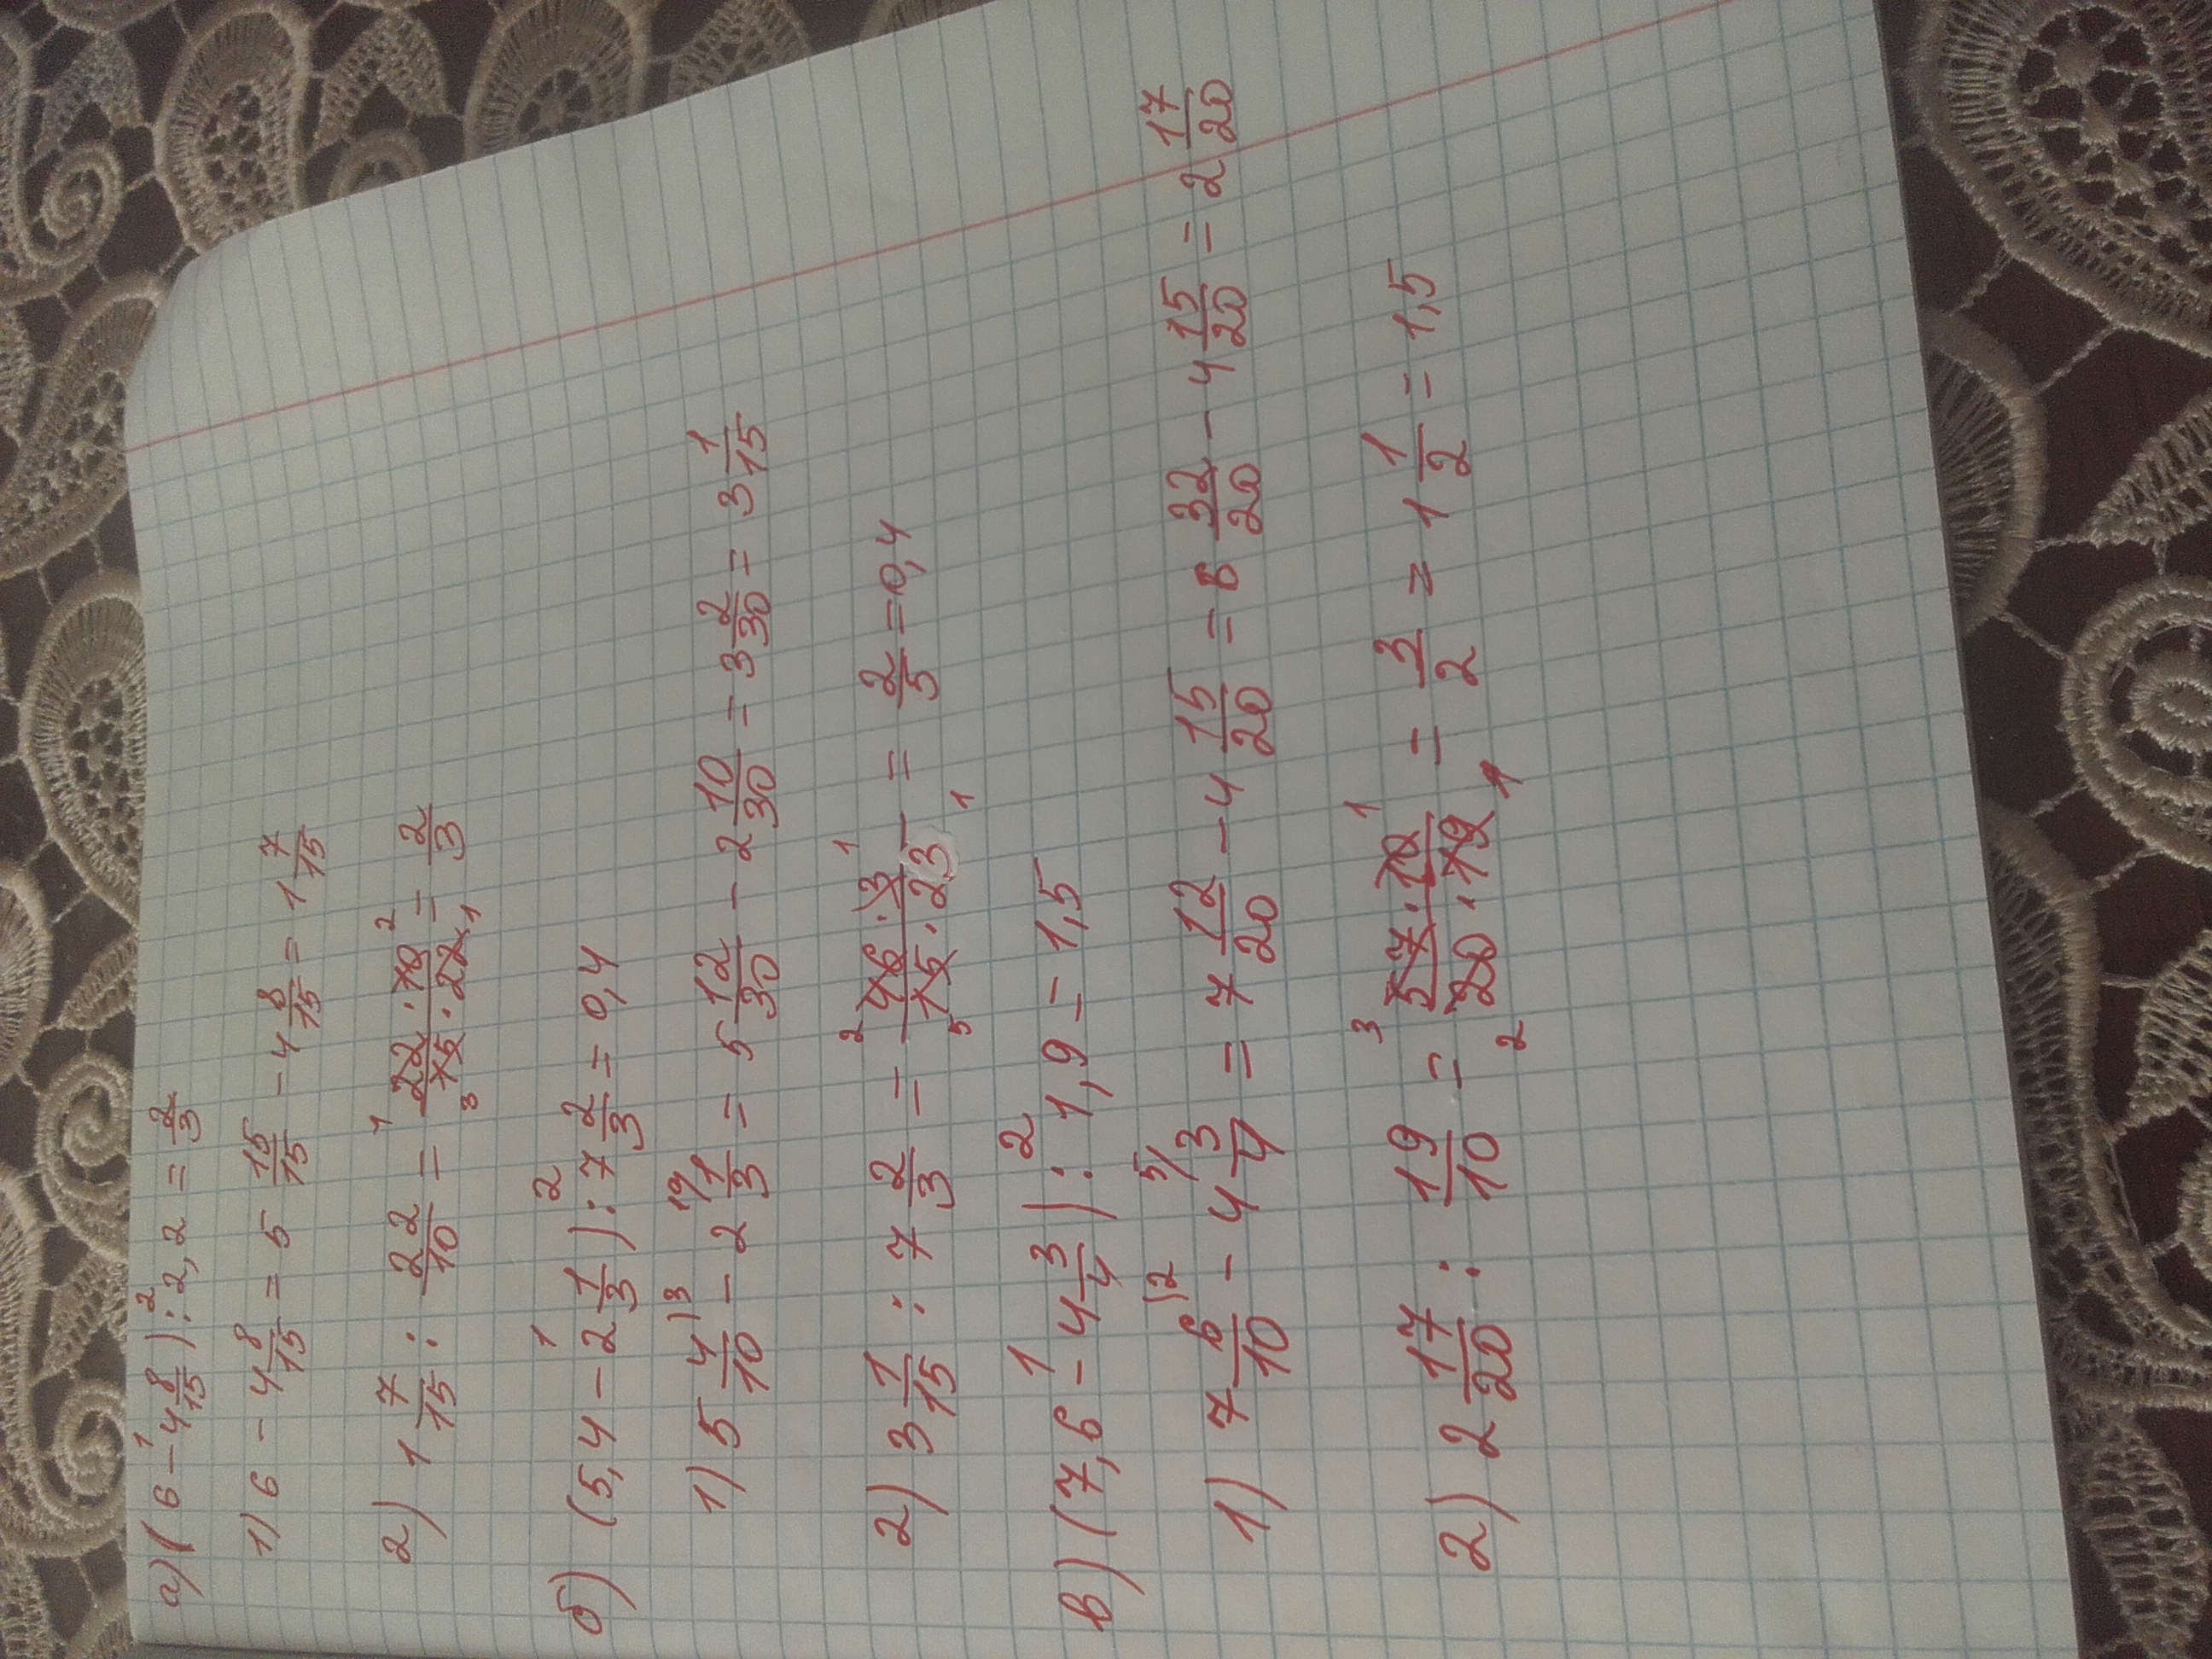 а) (6 - 4 8/15) : 2,2 = 2/3
1) 6 - 4 8/15 = 5 15/15 - 4 8/15 = 1 7/15
2) 1 7/15 : 22/10 = (22 · 10)/(15 · 22) = 2/3
б) (5,4 - 2 1/3) : 7 2/3 = 0,4
1) 5 4/10 - 2 1/3 = 5 12/30 - 2 10/30 = 3 2/30 = 3 1/15
2) 3 1/15 : 7 2/3 = (46 · 3)/(15 · 23) = 2/5 = 0,4
в) (7,6 - 4 3/4) : 1,9 = 1,5
1) 7 6/10 - 4 3/4 = 7 12/20 - 4 15/20 = 6 32/20 - 4 15/20 = 2 17/20
2) 2 17/20 : 19/10 = (57 · 10)/(20 · 19) = 3/2 = 1 1/2 = 1,5